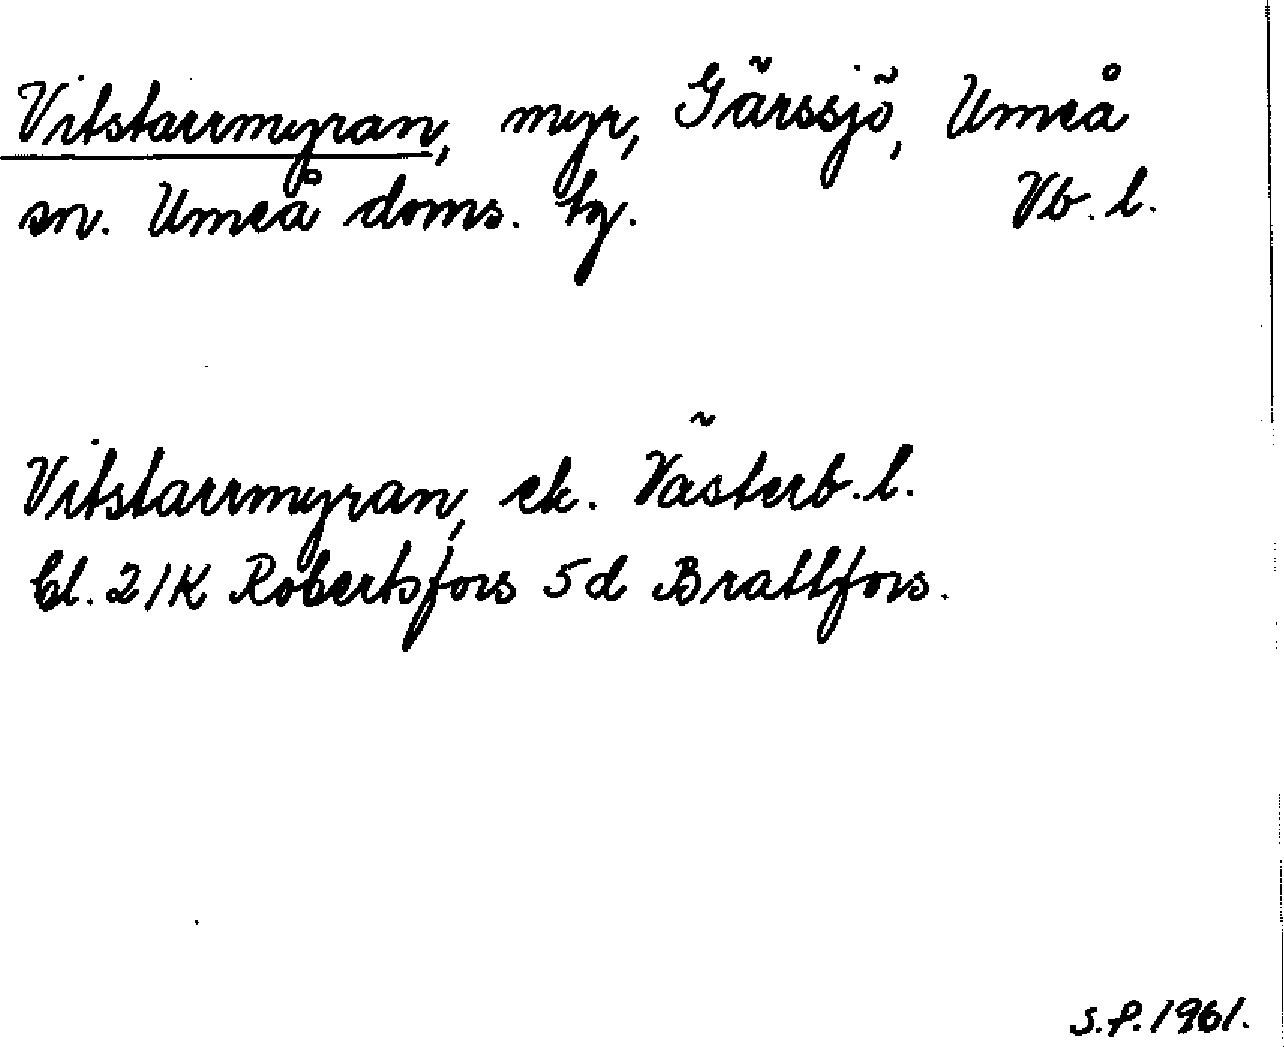 Vitstarrmyran, myr, Gärssjö, Umeå
sn. Umeå doms. hg. Vb. l.
Vitstarrmyran, ek. Västerb. l.
Bl. 21K Robertsfors 5d Brattfors.
S.P. 1961.